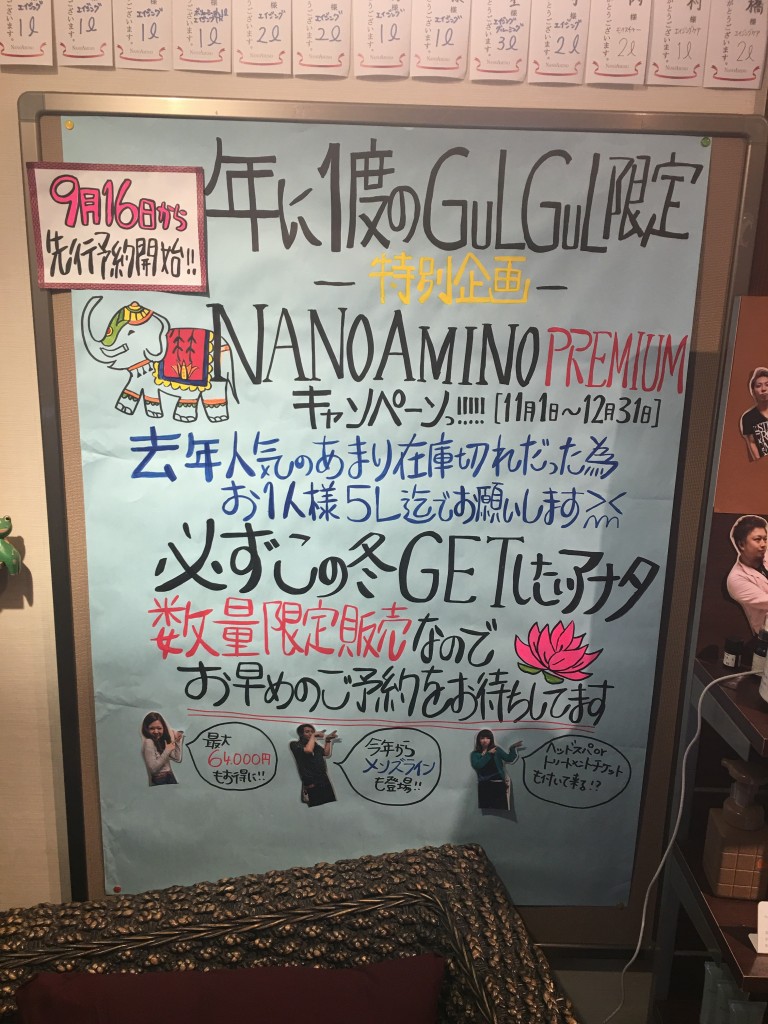 1ℓ
1ℓ
1ℓ
1ℓ
2ℓ
2ℓ
1ℓ
1ℓ
3ℓ
2ℓ
2ℓ
1ℓ
2ℓ
9月16日から
先行予約開始!!
年に1度のGULGUL限定
－特別企画－
NANOAMINO PREMIUM
キャンペーンっ!!!!! [11月1日～12月31日]
去年人気のあまり在庫切れだった為
お1人様5L迄でお願いします
必ずこの冬GETしたいアナタ
数量限定販売なので
お早めのご予約をお待ちしてます
最大
64,000円
もお得に!!
今年から
メンズライン
も登場!!
ヘッドスパor
トリートメントチケット
も付いて来る!?